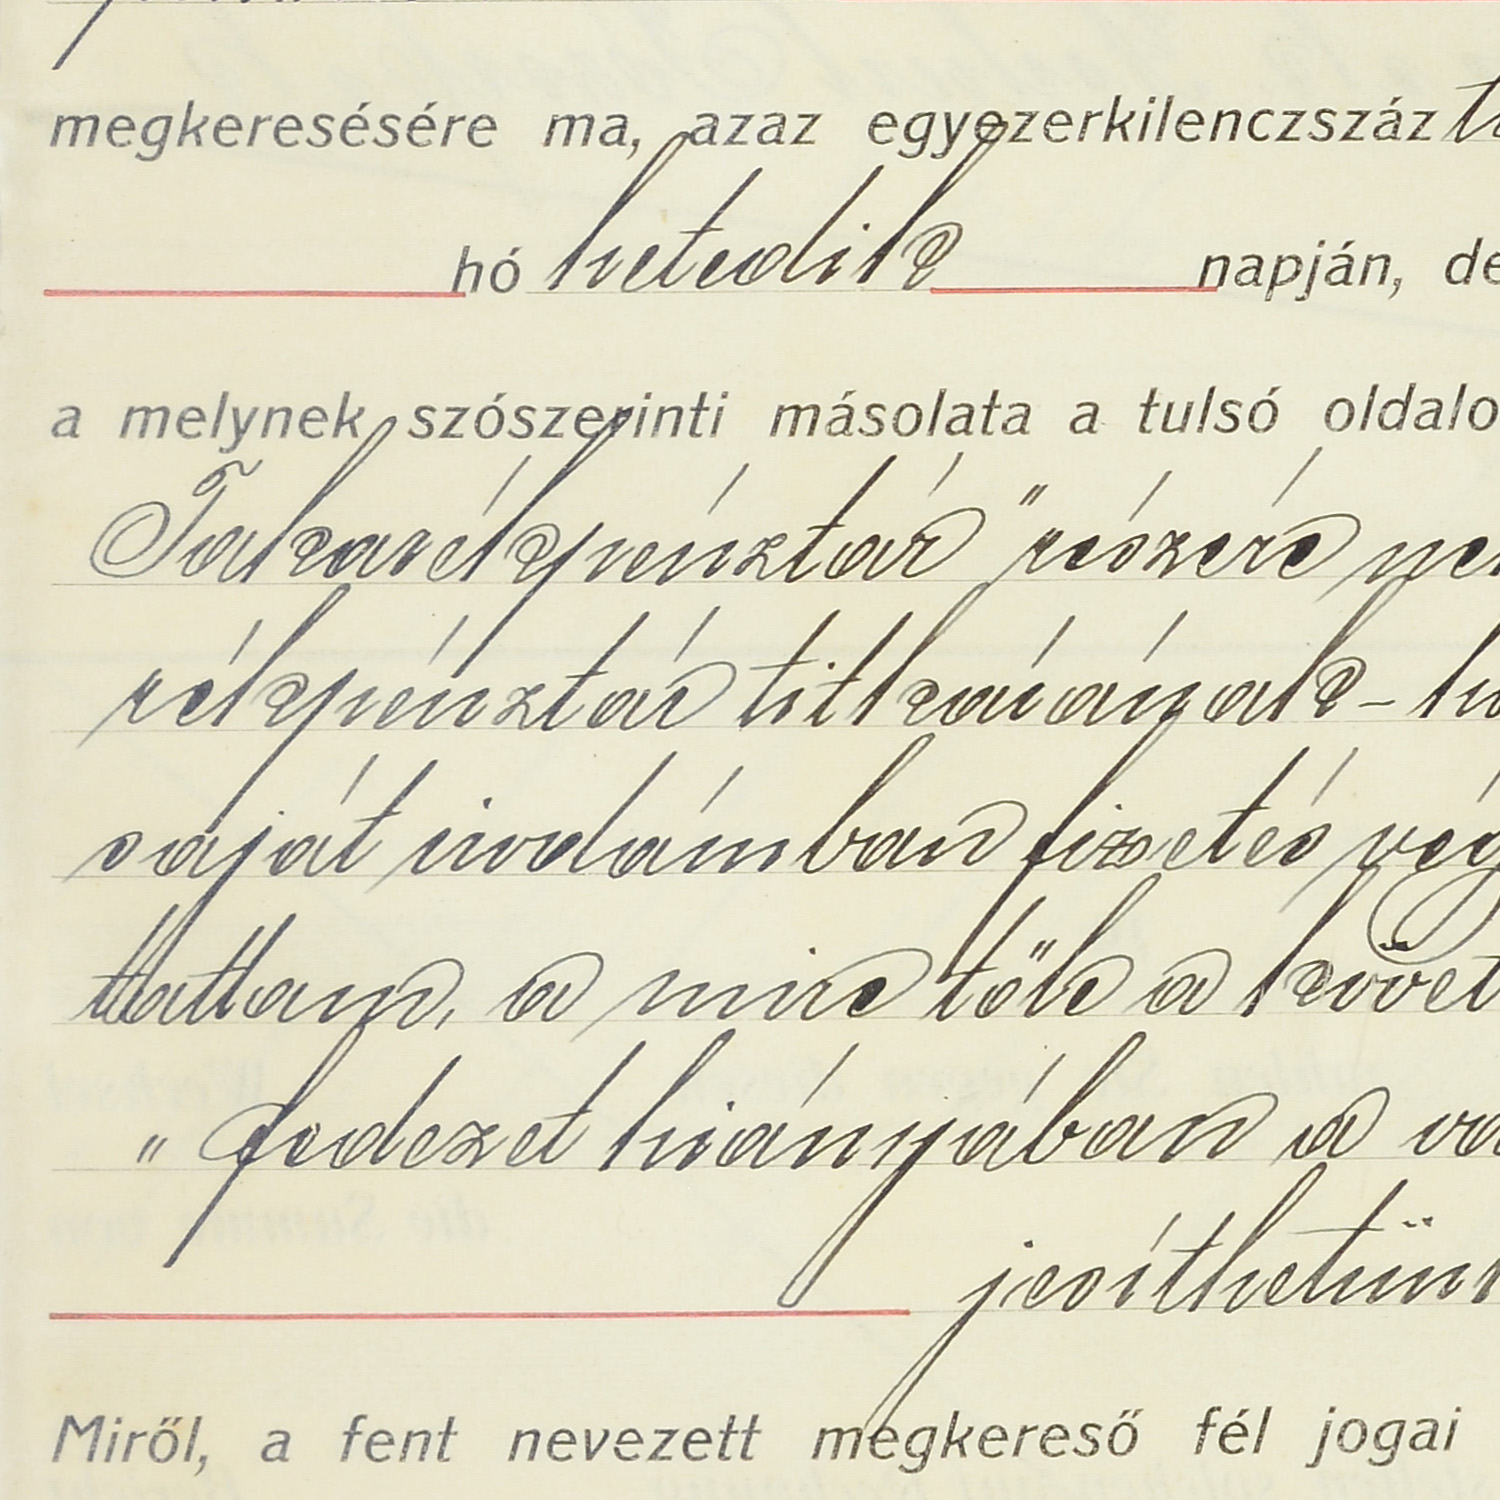 megkeresésére ma, azaz egyezerkilenczszáz
hó hetedik napján, de
a melynek szószerinti másolata a tulsó oldalo
Takarékpénztár" részére ne
rékpénztár titkárának – h
saját irodámban fizetés vég
tattam, a mire tőle a követ
" Fedezet hiányában a va
jesíthetün
Miről, a fent nevezett megkereső fél jogai